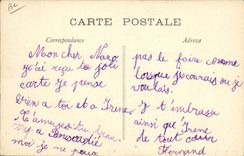 CARTE POSTALE
Correspondance
Adresse
Mon cher Nano
j'ai reçu ta joli
carte je pense
bien a toi et a Irene
t'amuses tu beau
coup a
moi je ne peux
pas le faire comme
lorsque j'ecourais ou je
voulais.
Je t'embrasse
ainsi que Irene
de tout cœur
Fernand